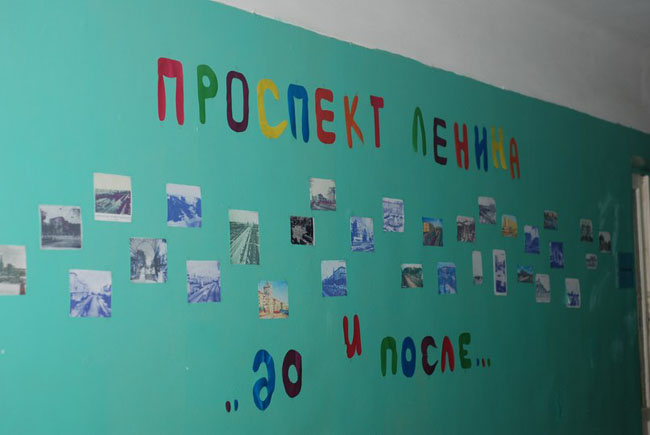 ПРОСПЕКТ ЛЕНИНА
..ДО И ПОСЛЕ...